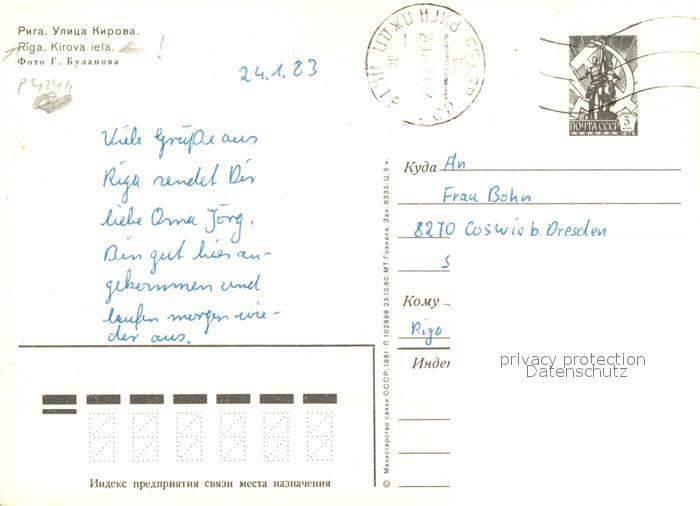 Рига. Улица Кирова.
Rīga. Kirova iela.
Фото Г. Буланова
24.1.83
Viele Grüße aus
Riga sendet Dir
liebe Oma Jörg.
Bin gut hier an-
gekommen und
laufen morgen wie-
der aus.
Индекс предприятия связи места назначения
© Министерство связи СССР, 1981 Л 102898 23.10.80. МТ Гознака. Зак. 8332. Ц. 5 к.
ПОЧТА СССР 3 КОП
Куда An
Frau Bohn
8270 Coswig b. Dresden
S
Кому
Riga
Индек
privacy protection
Datenschutz